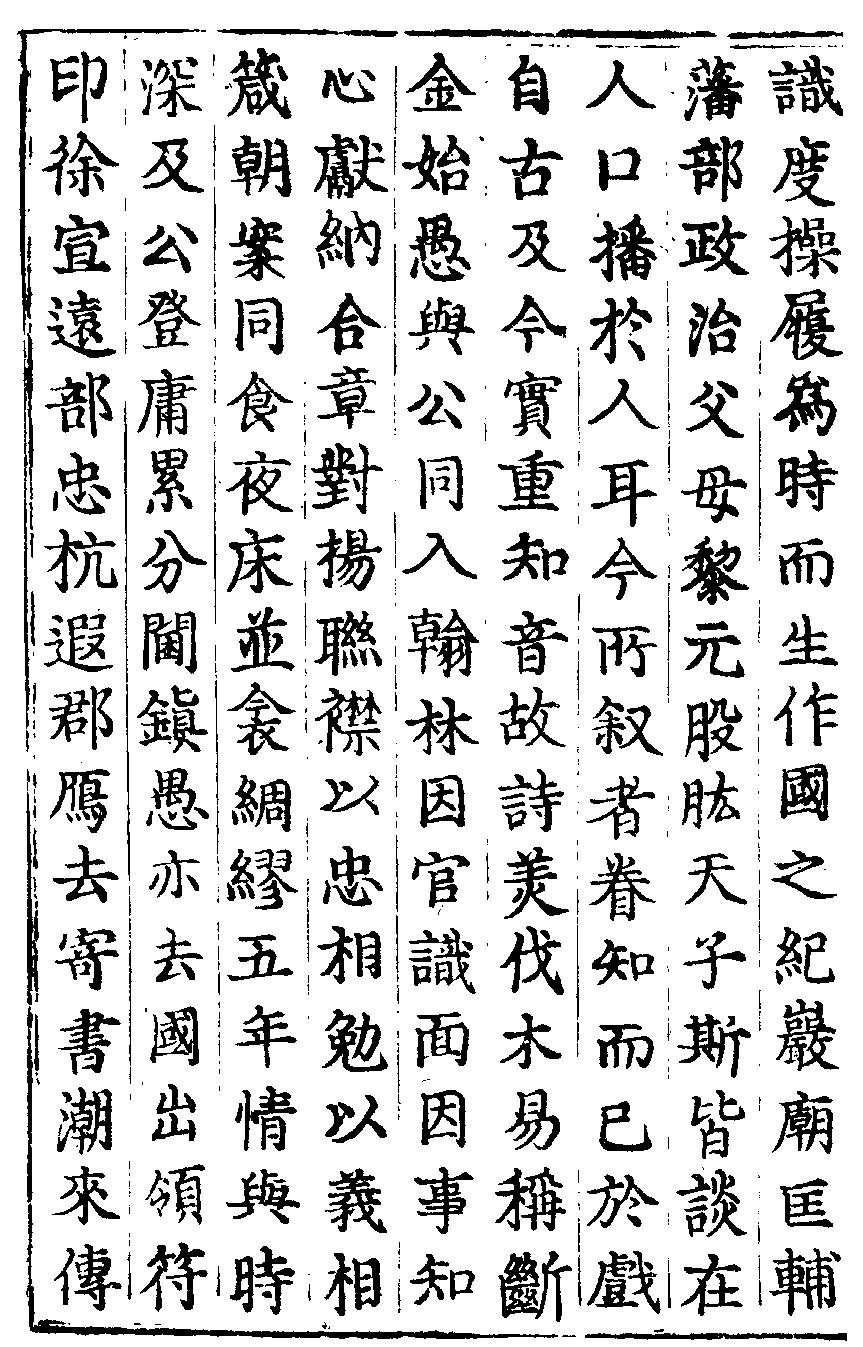 識度操履為時而生作國之紀巖廟匡輔
藩部政治父母黎元股肱天子斯皆談在
人口播於人耳今所叙者眷知而已於戲
自古及今實重知音故詩羙伐木易稱斷
金始愚與公同入翰林因官識面因事知
心獻納合章對揚聯襟以忠相勉以義相
箴朝案同食夜床並衾綢繆五年情與時
深及公登庸累分閫鎮愚亦去國出領符
印徐宣遠部忠杭遐郡鴈去寄書潮來傳